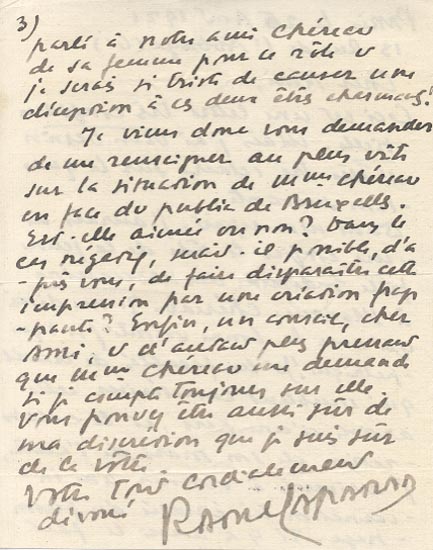 3)
parlé à notre ami Chéreau
de sa femme pour ce rôle et
je serais si triste de causer une
déception à ces deux êtres charmants!
Je viens donc vous demander
de me renseigner au plus vite
sur la situation de Mme Chéreau
en face du public de Bruxelles.
Est-elle aimée ou non? Dans le
cas négatif, serait-il possible, d'a
-près vous, de faire disparaître cette
impression par une création frap
-pante? Enfin, un conseil, cher
Ami, et d'autant plus pressant
que Mme Chéreau me demande
si je compte toujours sur elle
Vous pouvez être aussi sûr de
ma discrétion que je suis sûr
de la vôtre.
Votre tout cordialement
dévoué
Raoul Laparra